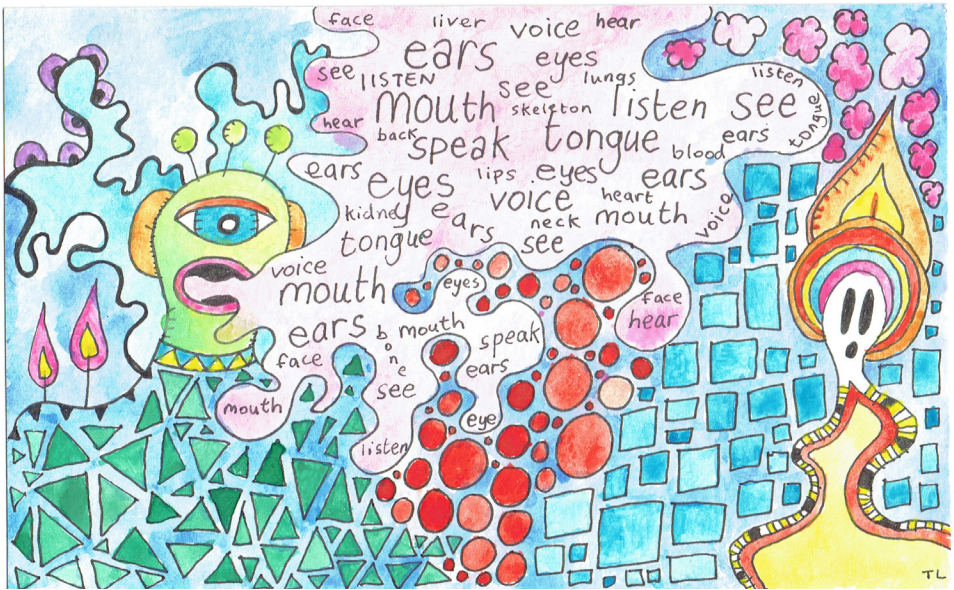 face liver voice hear
ears eyes
see LISTEN see lungs listen
mouth skeleton listen see
hear back speak tongue tongue
blood ears
ears eyes lips eyes ears
kidney ears voice heart
neck mouth voice
tongue see
voice
mouth eyes
face
hear
ears bone mouth speak
face see ears
mouth eye
listen
TL